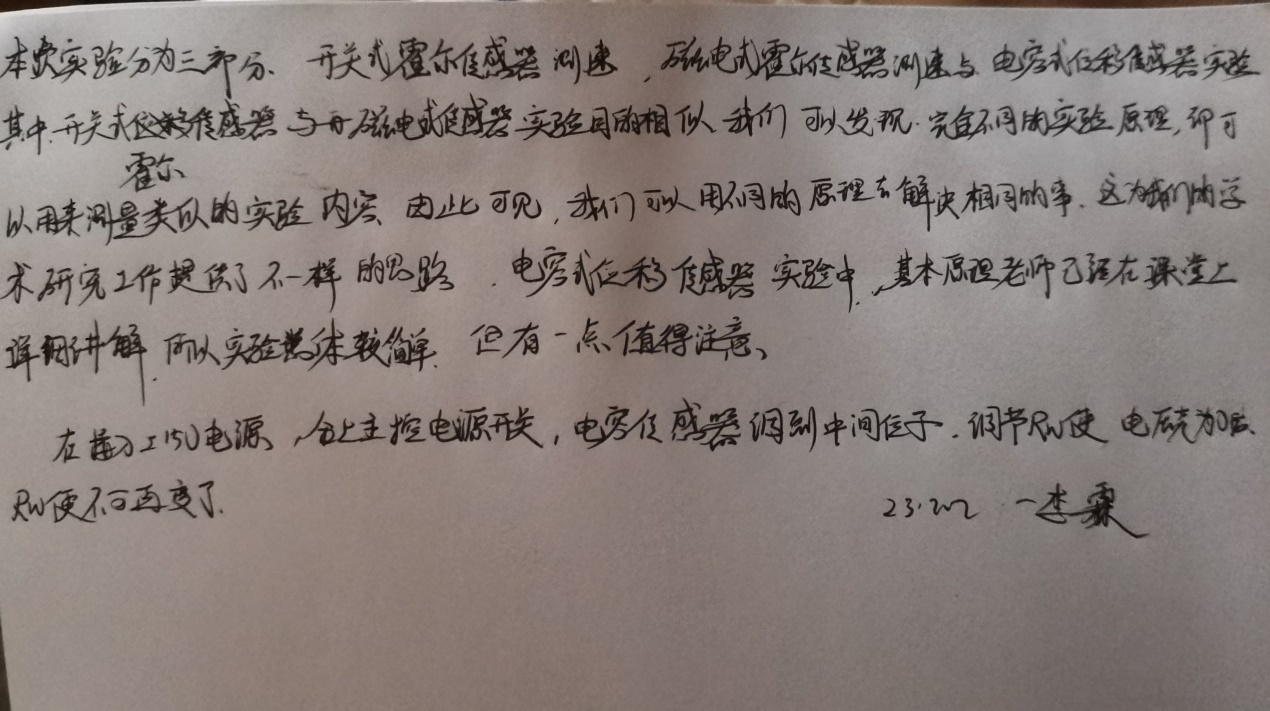 本次实验分为三部分. 开关式霍尔传感器测速, 磁电式霍尔传感器测速与电容式位移传感器实验
其中.开关式传感器与磁电式传感器实验目的相似我们可以发现.完全不同的实验原理,即可
霍尔
以用来测量类似的实验内容.因此可见,我们可以用不同的原理去解决相同的事.这为我们的学
术研究工作提供了不一样的思路.电容式位移传感器实验中,基本原理老师已经在课堂上
详细讲解.所以实验总体较简单.但有一点值得注意、
在接入±15V电源,合上主控电源开关,电容传感器调到中间位子.调节Rw使电压为0后、
Rw便不可再变了.
23.2.2 一李霖